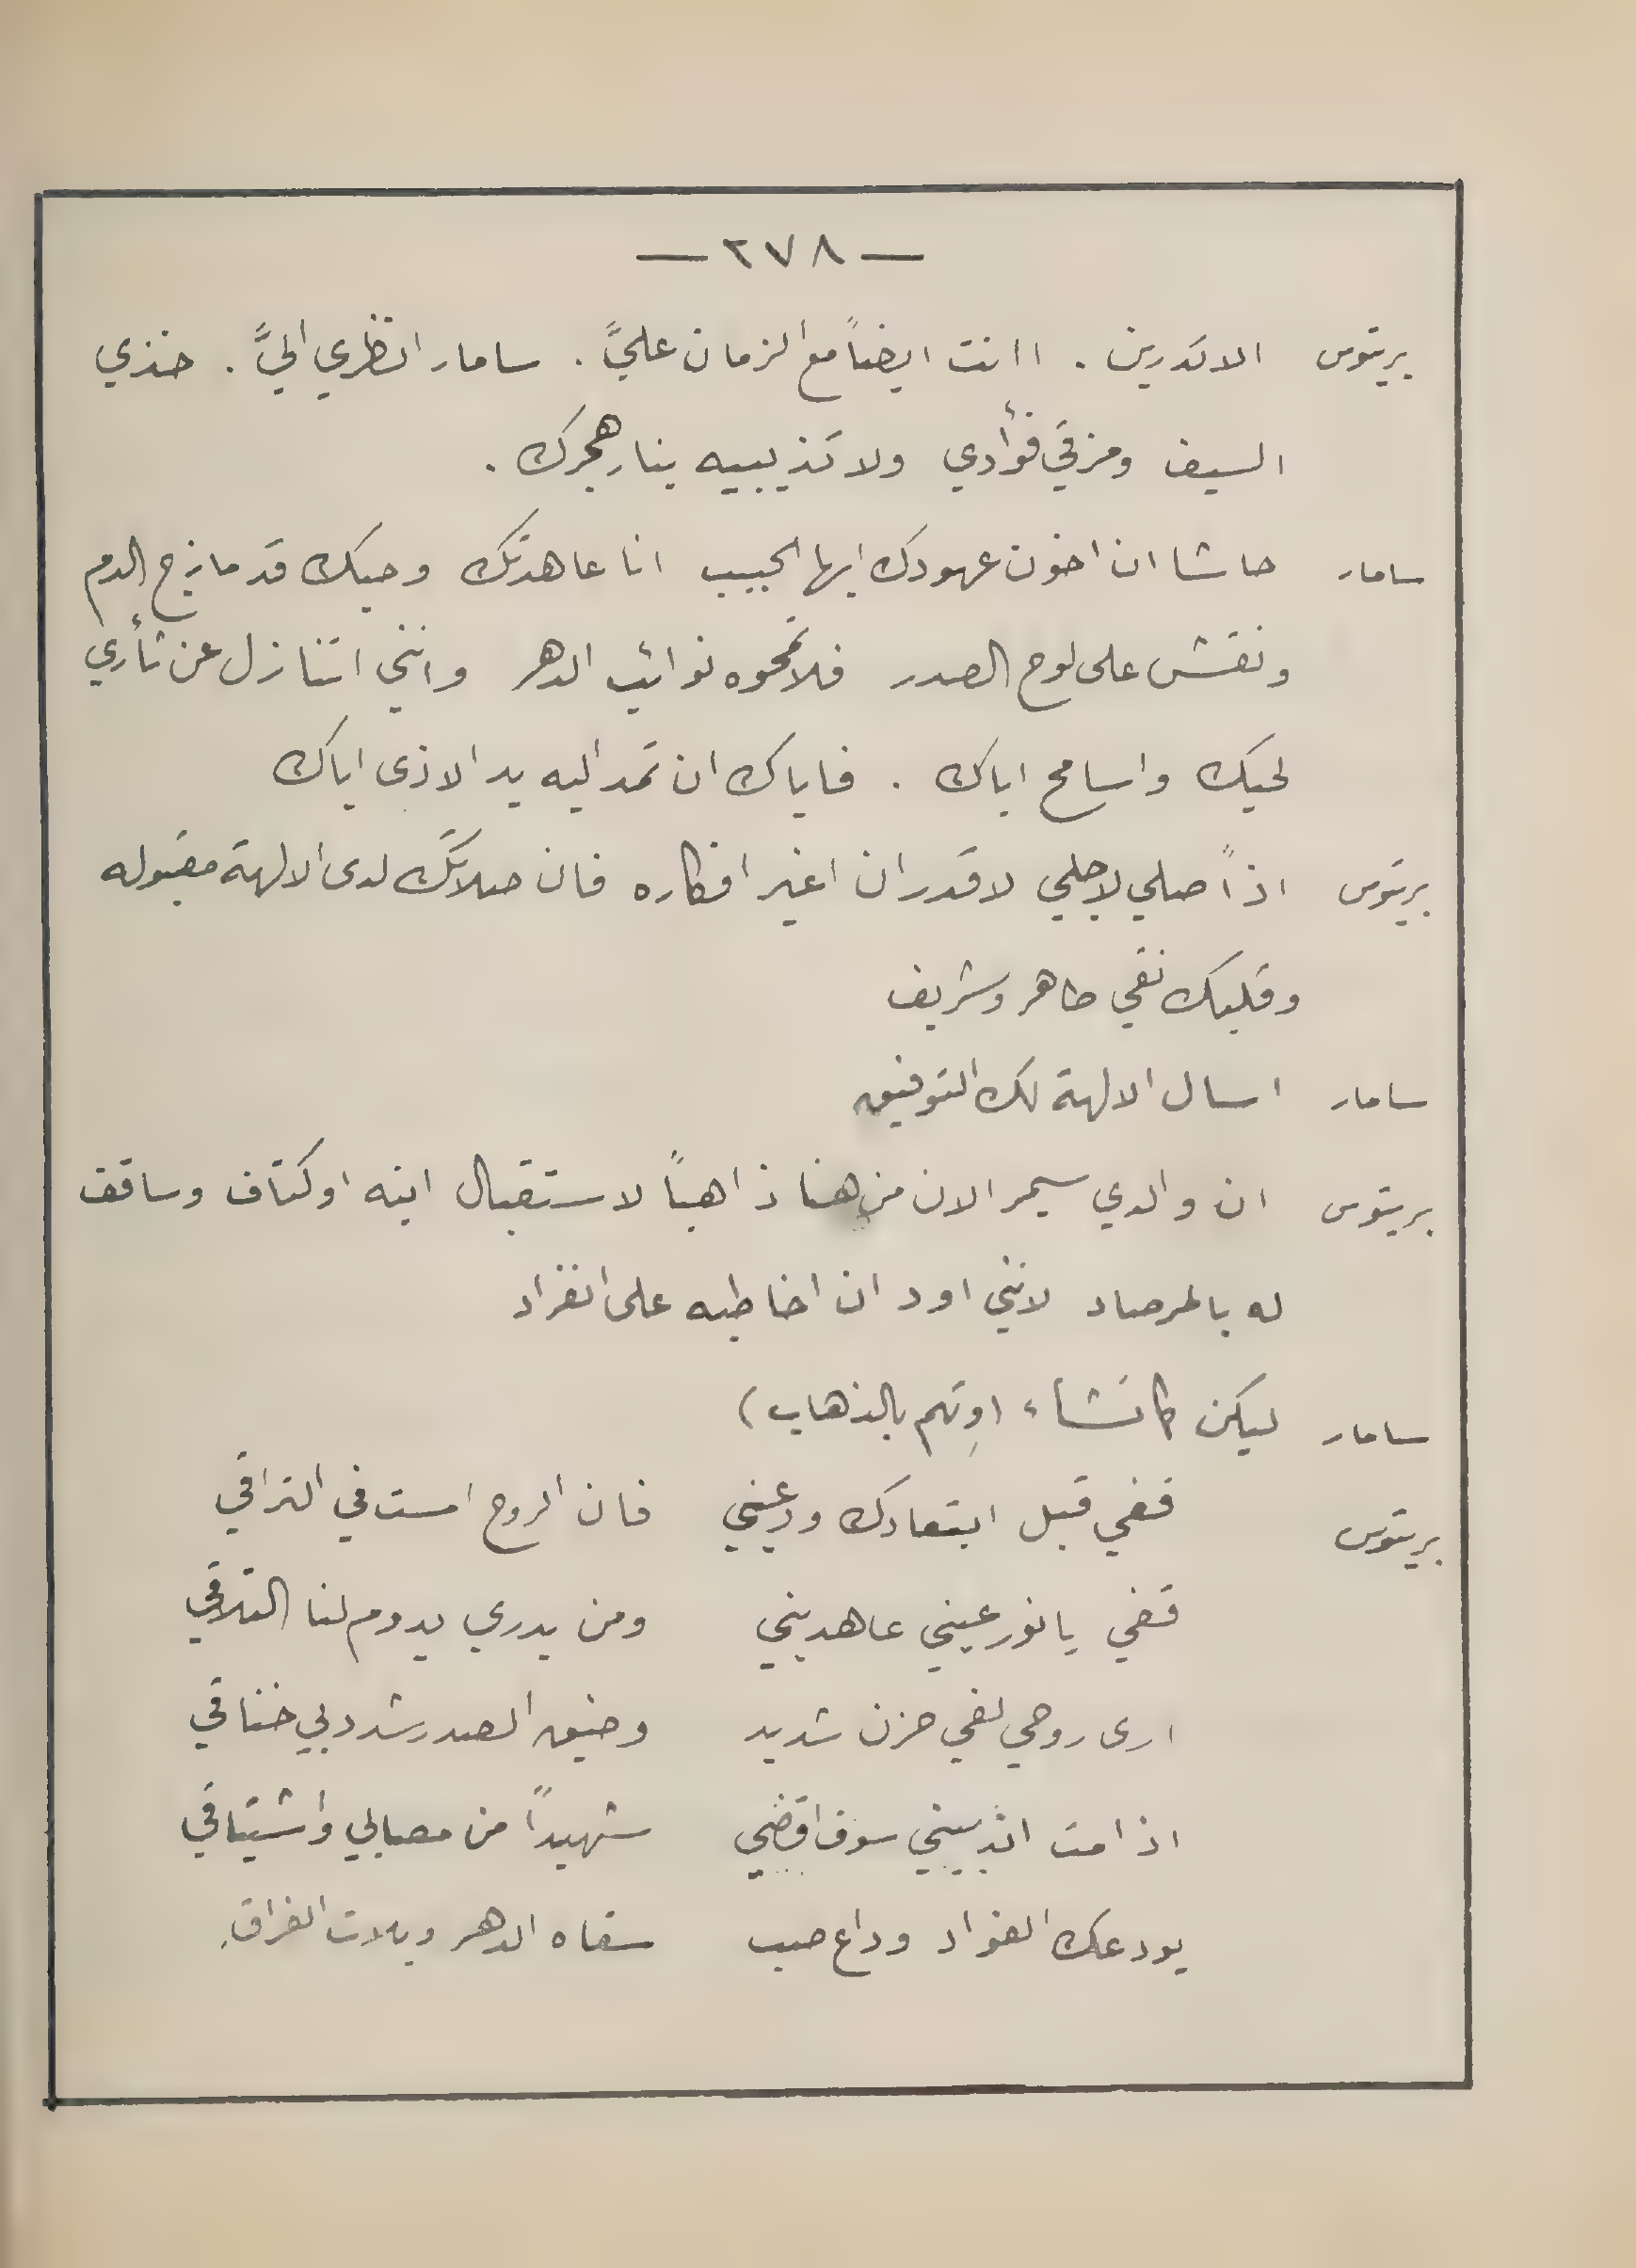 — ٢٧٨ —
بريتوس الا تدرين . اانت ايضاً مع الزمان عليَّ . سامار انظري اليَّ . خذي
السيف ومزقي فؤادي ولا تذيبيه بنار هجرك .
سامار حاشا ان اخون عهودك ايها الحبيب انا عاهدتك وحبك قد مازج الدم
ونقش على لوح الصدر فلا تمحوه نوائب الدهر وانني اتنازل عن ثأري
لحبك واسامح اباك . فاياك ان تمد اليه يد الاذى اياك
بريتوس اذاً صلي لاجلي لاقدر ان اغير افكاره فان صلاتك لدى الالهة مقبوله
وقلبك نقي طاهر وشريف
سامار اسال الالهة لك التوفيق
بريتوس ان والدي سيمر الان من هنا ذاهباً لاستقبال ابنه اوكتاف وساقف
له بالمرصاد لانني اود ان اخاطبه على انفراد
سامار ليكن كما تشاء (وتهم بالذهاب)
بريتوس قفي قبل ابتعادك ودعيني فان الروح امست في التراقي
قفي يا نور عيني عاهديني ومن يدري يدوم لنا التلاقي
ارى روحي لفي حزن شديد وضيق الصدر شدد بي خناقي
اذا مت اندبيني سوف اقضي شهيداً من مصابي واشتياقي
يودعك الفؤاد وداع صب سقاه الدهر ويلات الفراقِ